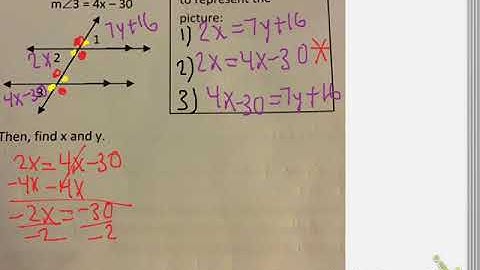 m∠3 = 4x – 30
to represent the
picture:
7y+16
1
2x
2
4x-30
3
1) 2x=7y+16
2) 2x=4x-30 *
3) 4x-30=7y+16
Then, find x and y.
2x=4x-30
-4x -4x
-2x=-30
-2 -2